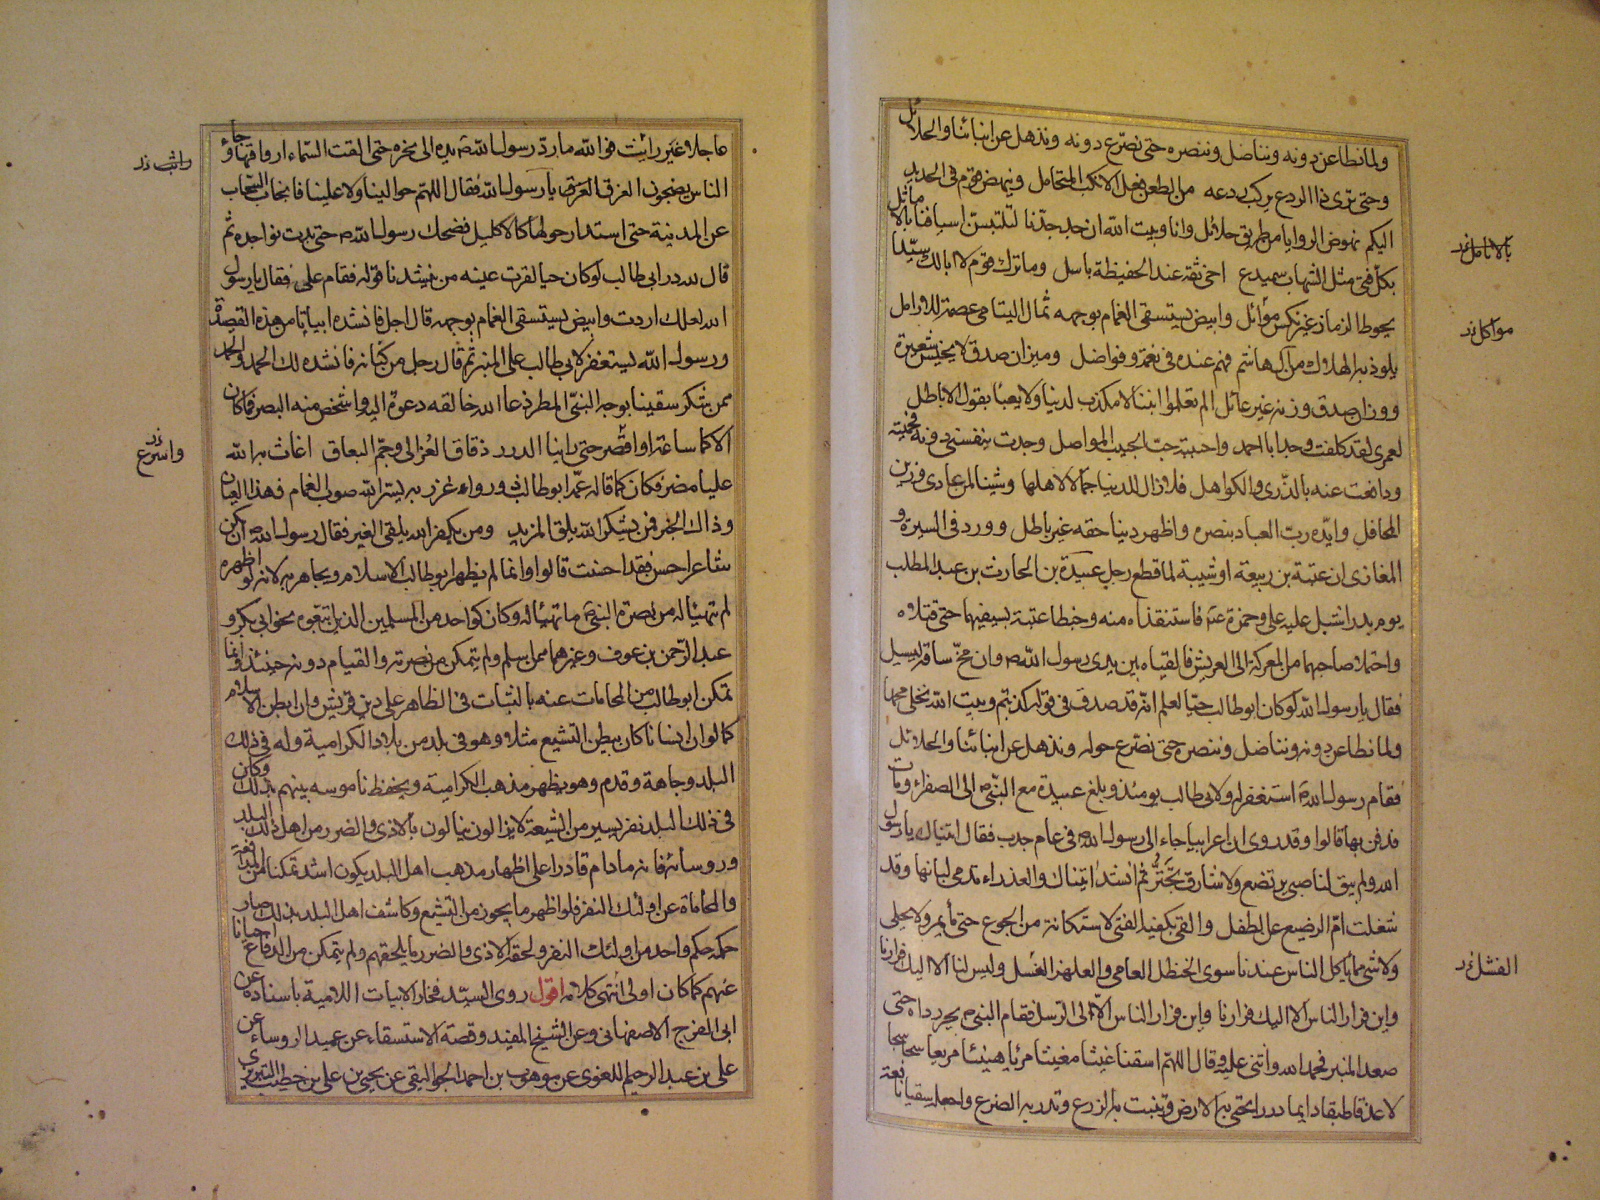 ولما نطاعن دونه ونناضل وننصره حتى نصرع دونه ونذهل عن ابنائنا والحلائل
وحتى نرى ذا الردع يركب ردعه من الطعن فعل الانكب المتحامل وينهض قوم في الحديد
اليكم نهوض الروايا من طريق حلائل وانا وبيت الله ان جد جدنا لتلتبسن اسيافنا بالاماثل
بكل فتى مثل الشهاب سميدع اخي ثقة عند الحفيظة باسل وما ترك قوم لا ابالك سيدا
يحوط الذمار غير نكس موائل وابيض يستسقى الغمام بوجهه ثمال اليتامى عصمة للارامل
يلوذ به الهلاك من آل هاشم فهم عنده في نعمة وفواضل وميزان صدق لا يخيس شعيرة
ووزان صدق وزنه غير عائل الم تعلموا ان ابننا لا مكذب لدينا ولا يعبأ بقول الاباطل
لعمري لقد كلفت وجدا باحمد واحببته حب الحبيب المواصل وجدت بنفسي دونه فحميته
ودافعت عنه بالذرى والكواهل فلا زال للدنيا جمالا لاهلها وشينا لمن عادى وزين
المحافل وايده رب العباد بنصره واظهر دينا حقه غير باطل وورد في السيرة و
المغازي ان عتبة بن ربيعة او شيبة لما قطع رجل عبيدة بن الحارث بن عبد المطلب
يوم بدر اشبل عليه علي وحمزة عمه فاستنقذاه منه وخبطا عتبة بسيفيهما حتى قتلاه
واحتملا صاحبهما من المعركة الى العريش فالقياه بين يدي رسول الله ص وان مخ ساقه ليسيل
فقال يا رسول الله لو كان ابو طالب حيا لعلم انه قد صدق في قوله كذبتم وبيت الله نخلي محمدا
ولما نطاعن دونه ونناضل وننصره حتى نصرع حوله ونذهل عن ابنائنا والحلائل
فقام رسول الله ص استغفر له ولابي طالب يومئذ وبلغ عبيدة مع النبي ص الى الصفراء ومات
فدفن بها قالوا وقد روى ان اعرابيا جاء الى رسول الله ص في عام جدب فقال اتيناك يا رسول
الله ولم يبق لنا صبي يرتضع ولا شارف يجتر ثم انشد اتيناك والعذراء تدمى لبانها وقد
شغلت ام الرضيع عن الطفل والقى بكفيه الفتى لاستكانة من الجوع حتى ما يمر ولا يحلي
ولا شيء مما يأكل الناس عندنا سوى الحنظل العامي والعلهز الغسل وليس لنا الا اليك فرارنا
واين فرار الناس الا اليك فرارنا واين فرار الناس الا الى الرسل فقام النبي ص يجر رداه حتى
صعد المنبر فحمد الله واثنى عليه وقال اللهم اسقنا غيثا مغيثا مريا هنيئا مريعا سحا سجا
لا غدقا طبقا دائما دررا تحيي به الارض وتنبت به الزرع وتدر به الضرع واجعله سقيا نافعة
بالانامل خ‌ر
مواكل خ‌ر
الفشل خ‌ر
عاجلا غير رائث فوالله ما رد رسول الله ص يده الى نحره حتى القت السماء ارواقها وجاء
الناس يضجون الغرق الغرق يا رسول الله فقال اللهم حوالينا ولا علينا فانجاب السحاب
عن المدينة حتى استدار حولها كالاكليل فضحك رسول الله ص حتى بدت نواجده ثم
قال لله در ابي طالب لو كان حيا لقرت عينه من ينشدنا قوله فقام علي ع فقال يا رسول
الله لعلك اردت وابيض يستسقى الغمام بوجهه قال اجل فانشده ابياتا من هذه القصيدة
ورسول الله يستغفر لابي طالب على المنبر ثم قال رجل من كنانة فانشده لك الحمد والحمد
ممن شكر سقينا بوجه النبي المطر دعا الله خالقه دعوة اليه واشخص منه البصر فما كان
الا كما ساعة او اقصر حتى راينا الدرر دفاق العزالى وجم البعاق اغاث به الله
عليا مضر فكان كما قاله عمه ابو طالب ذو رواء غزر به يسر الله صوب الغمام فهذا العيان
وذاك الخبر فمن يشكر الله يلق المزيد ومن يكفر الله يلقى الغير فقال رسول الله ص ان يكن
شاعر احسن فقد احسنت قالوا وانما لم يظهر ابو طالب الاسلام ويجاهر به لانه لو اظهره
لم يتهيأ له من نصرة النبي ص ما تهيأ له وكان كواحد من المسلمين الذين اتبعوه نحو ابي بكر و
عبد الرحمن بن عوف وغيرهما ممن اسلم ولم يتمكن من نصرته والقيام دونه حينئذ وانما
تمكن ابو طالب من المحامات عنه بالثبات في الظاهر على دين قريش وان ابطن الاسلام
كما لو ان انسانا كان يبطن التشيع مثلا وهو في بلد من بلاد الكرامية وله في ذلك
البلد وجاهة وقدم وهو يظهر مذهب الكرامية ويحفظ ناموسه بينهم بذلك وكان
في ذلك البلد نفر يسير من الشيعة لا يزالون ينالون بالاذى والضرر من اهل ذلك البلد
وروسائه فانه ما دام قادرا على اظهار مذهب اهل البلد يكون اشد تمكنا من المدافعة
والمحاماة عن اولئك النفر فلو اظهر ما يجوز من التشيع وكاشف اهل البلد بذلك صار
حكمه حكم واحد من اولئك النفر ولحقه الاذى والضرر ما يلحقهم ولم يتمكن من الدفاع احيانا
عنهم كما كان اولى انتهى كلامه اقول روى السيد فخار الابيات اللامية باسناده عن
ابي الفرج الاصفهاني وعن الشيخ المفيد وقصة الاستسقاء عن عميد الروساء عن
علي بن عبد الرحيم اللغوي عن موهوب بن احمد الجواليقي عن يحيى بن علي بن خطيب التبريزي
واثب خ‌ر
واسرع خ‌ر